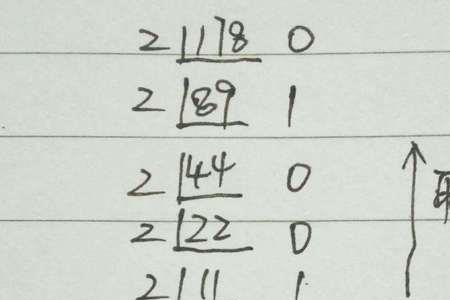 2 178 0
2 89 1
2 44 0
2 22 0
2 11 1